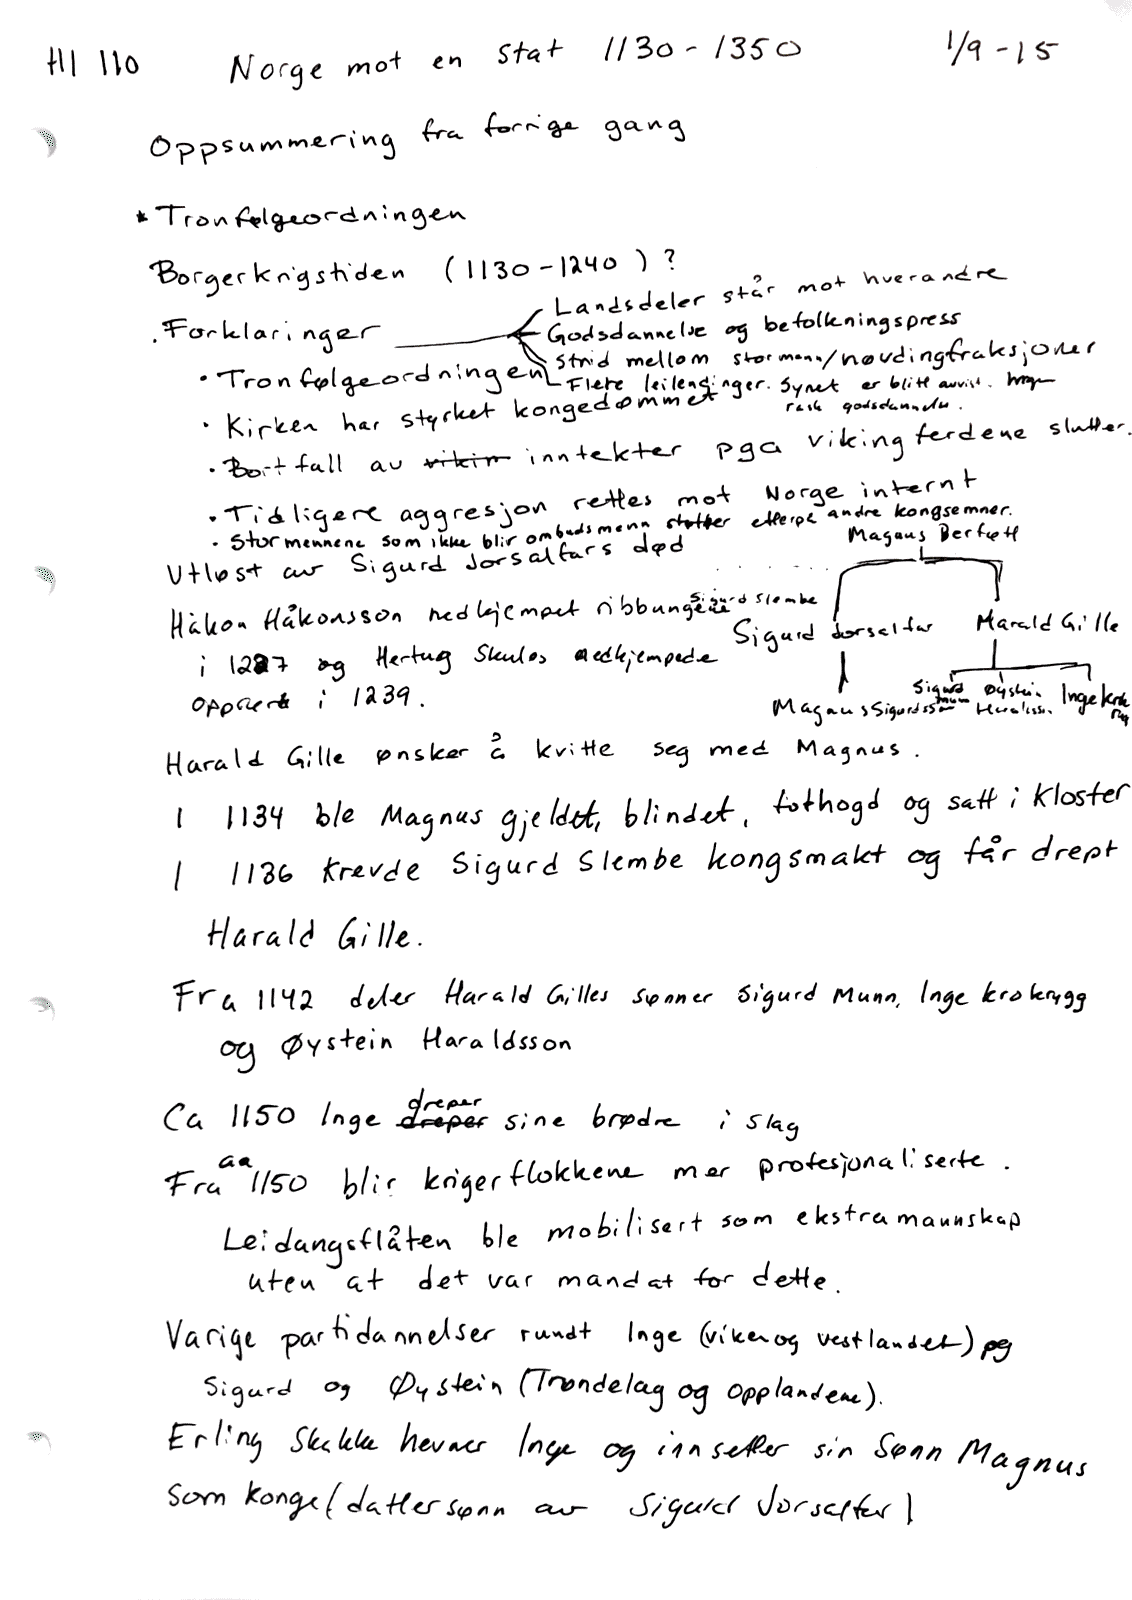 HI 110 Norge mot en stat 1130-1350 1/9-15
Oppsummering fra forrige gang
* Tronfølgeordningen
Borgerkrigstiden (1130-1240)?
Landsdeler står mot hverandre
. Forklaringer Godsdannelse og befolkningspress
Strid mellom stormenn/høvdingfraksjoner
· Tronfølgeordningen Flere leilendinger. Synet er blitt avvist.
rask godsdannelse.
· Kirken har styrket kongedømmet
· Bortfall av vikin inntekter pga vikingferdene slutter.
· Tidligere aggresjon rettes mot Norge internt
· Stormennene som ikke blir ombudsmenn støtter andre kongsemner.
Utløst av Sigurd Jorsalfars død
Magnus Berføtt
Håkon Håkonsson nedkjempet ribbungene
Sigurd Slembe
Sigurd Jorsalfar Harald Gille
i 1227 og Hertug Skules nedkjempede
opprørt i 1239.
Magnus Sigurdsson Sigurd munn Øystein Haraldss. Inge krokrygg
Harald Gille ønsker å kvitte seg med Magnus.
I 1134 ble Magnus gjeldet, blindet, fothogd og satt i kloster
I 1136 krevde Sigurd Slembe kongsmakt og får drept
Harald Gille.
Fra 1142 deler Harald Gilles sønner Sigurd Munn, Inge krokrygg
og Øystein Haraldsson
Ca 1150 Inge dreper dreper sine brødre i slag
Fra ca 1150 blir krigerflokkene mer profesjonaliserte.
Leidangsflåten ble mobilisert som ekstramannskap
uten at det var mandat for dette.
Varige partidannelser rundt Inge (viken og vestlandet) og
Sigurd og Øystein (Trøndelag og opplandene).
Erling Skakke hevner Inge og innsetter sin Sønn Magnus
som konge (dattersønn av Sigurd Jorsalfar)